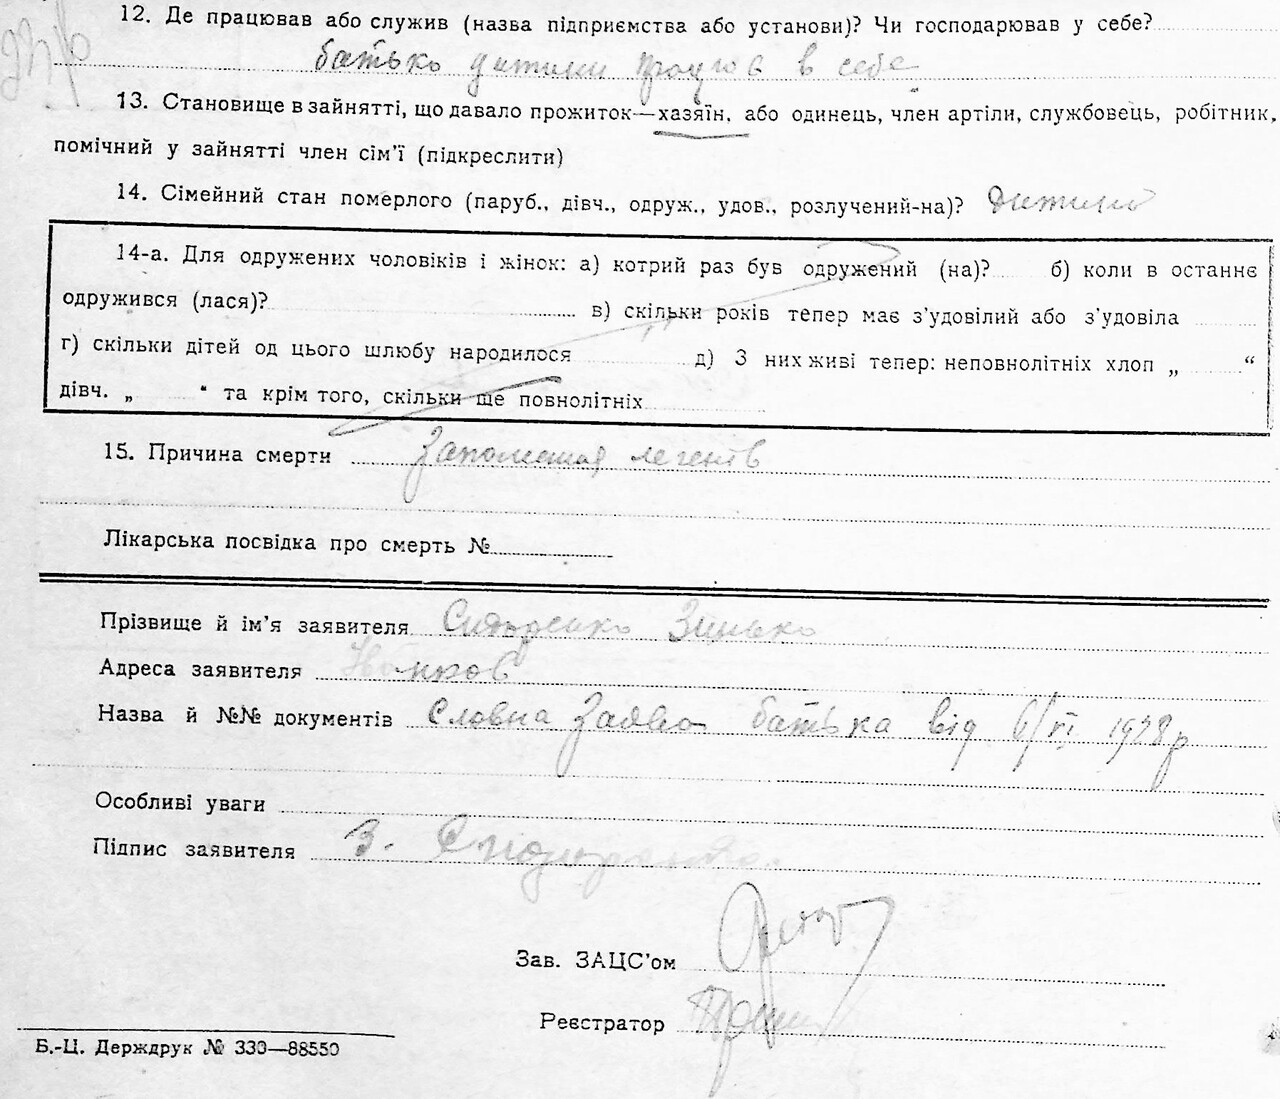 12. Де працював або служив (назва підприємства або установи)? Чи господарював у себе?
батько дитини працює в себе
13. Становище в зайнятті, що давало прожиток—хазяїн, або одинець, член артіли, службовець, робітник,
помічний у зайнятті член сім'ї (підкреслити)
14. Сімейний стан померлого (паруб., дівч., одруж., удов., розлучений-на)? дитина
14-а. Для одружених чоловіків і жінок: а) котрий раз був одружений (на)? б) коли в останнє
одружився (лася)? в) скільки років тепер має з'удовілий або з'удовіла
г) скільки дітей од цього шлюбу народилося д) З них живі тепер: неповнолітніх хлоп „ “
дівч. „ “ та крім того, скільки ще повнолітніх
15. Причина смерти Запалення легенів
Лікарська посвідка про смерть №
Прізвище й ім'я заявителя Сидоренко Зінько
Адреса заявителя Іванков
Назва й №№ документів Словна Заява батька від 6/VI 1928 р
Особливі уваги
Підпис заявителя З. Сидоренко
Зав. ЗАЦС'ом
Реєстратор
Б.-Ц. Держдрук № 330—88550